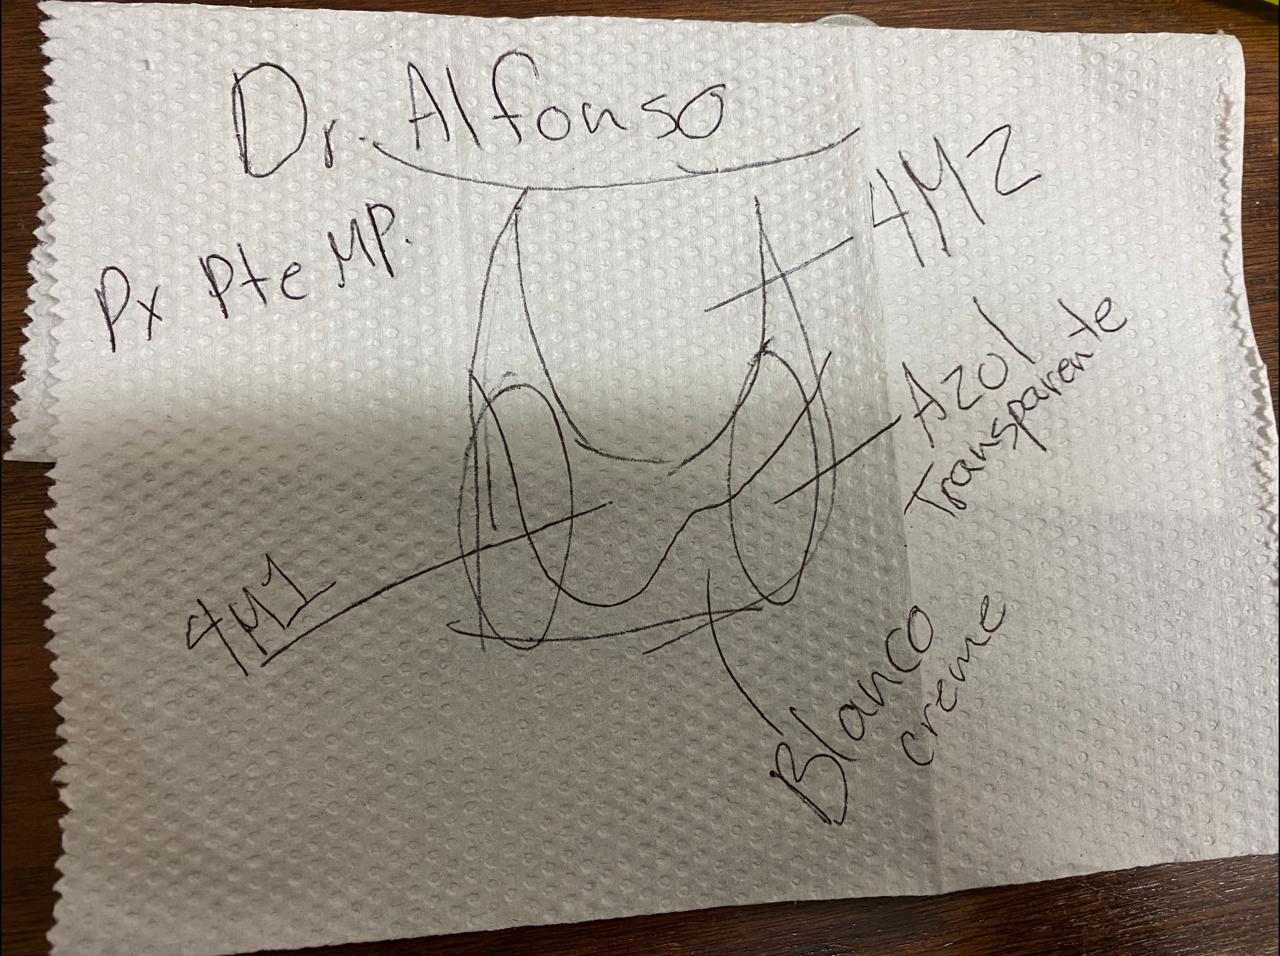 Dr. Alfonso
Px Pte MP.
4M2
Azul
Transparente
4M1
Blanco
creme